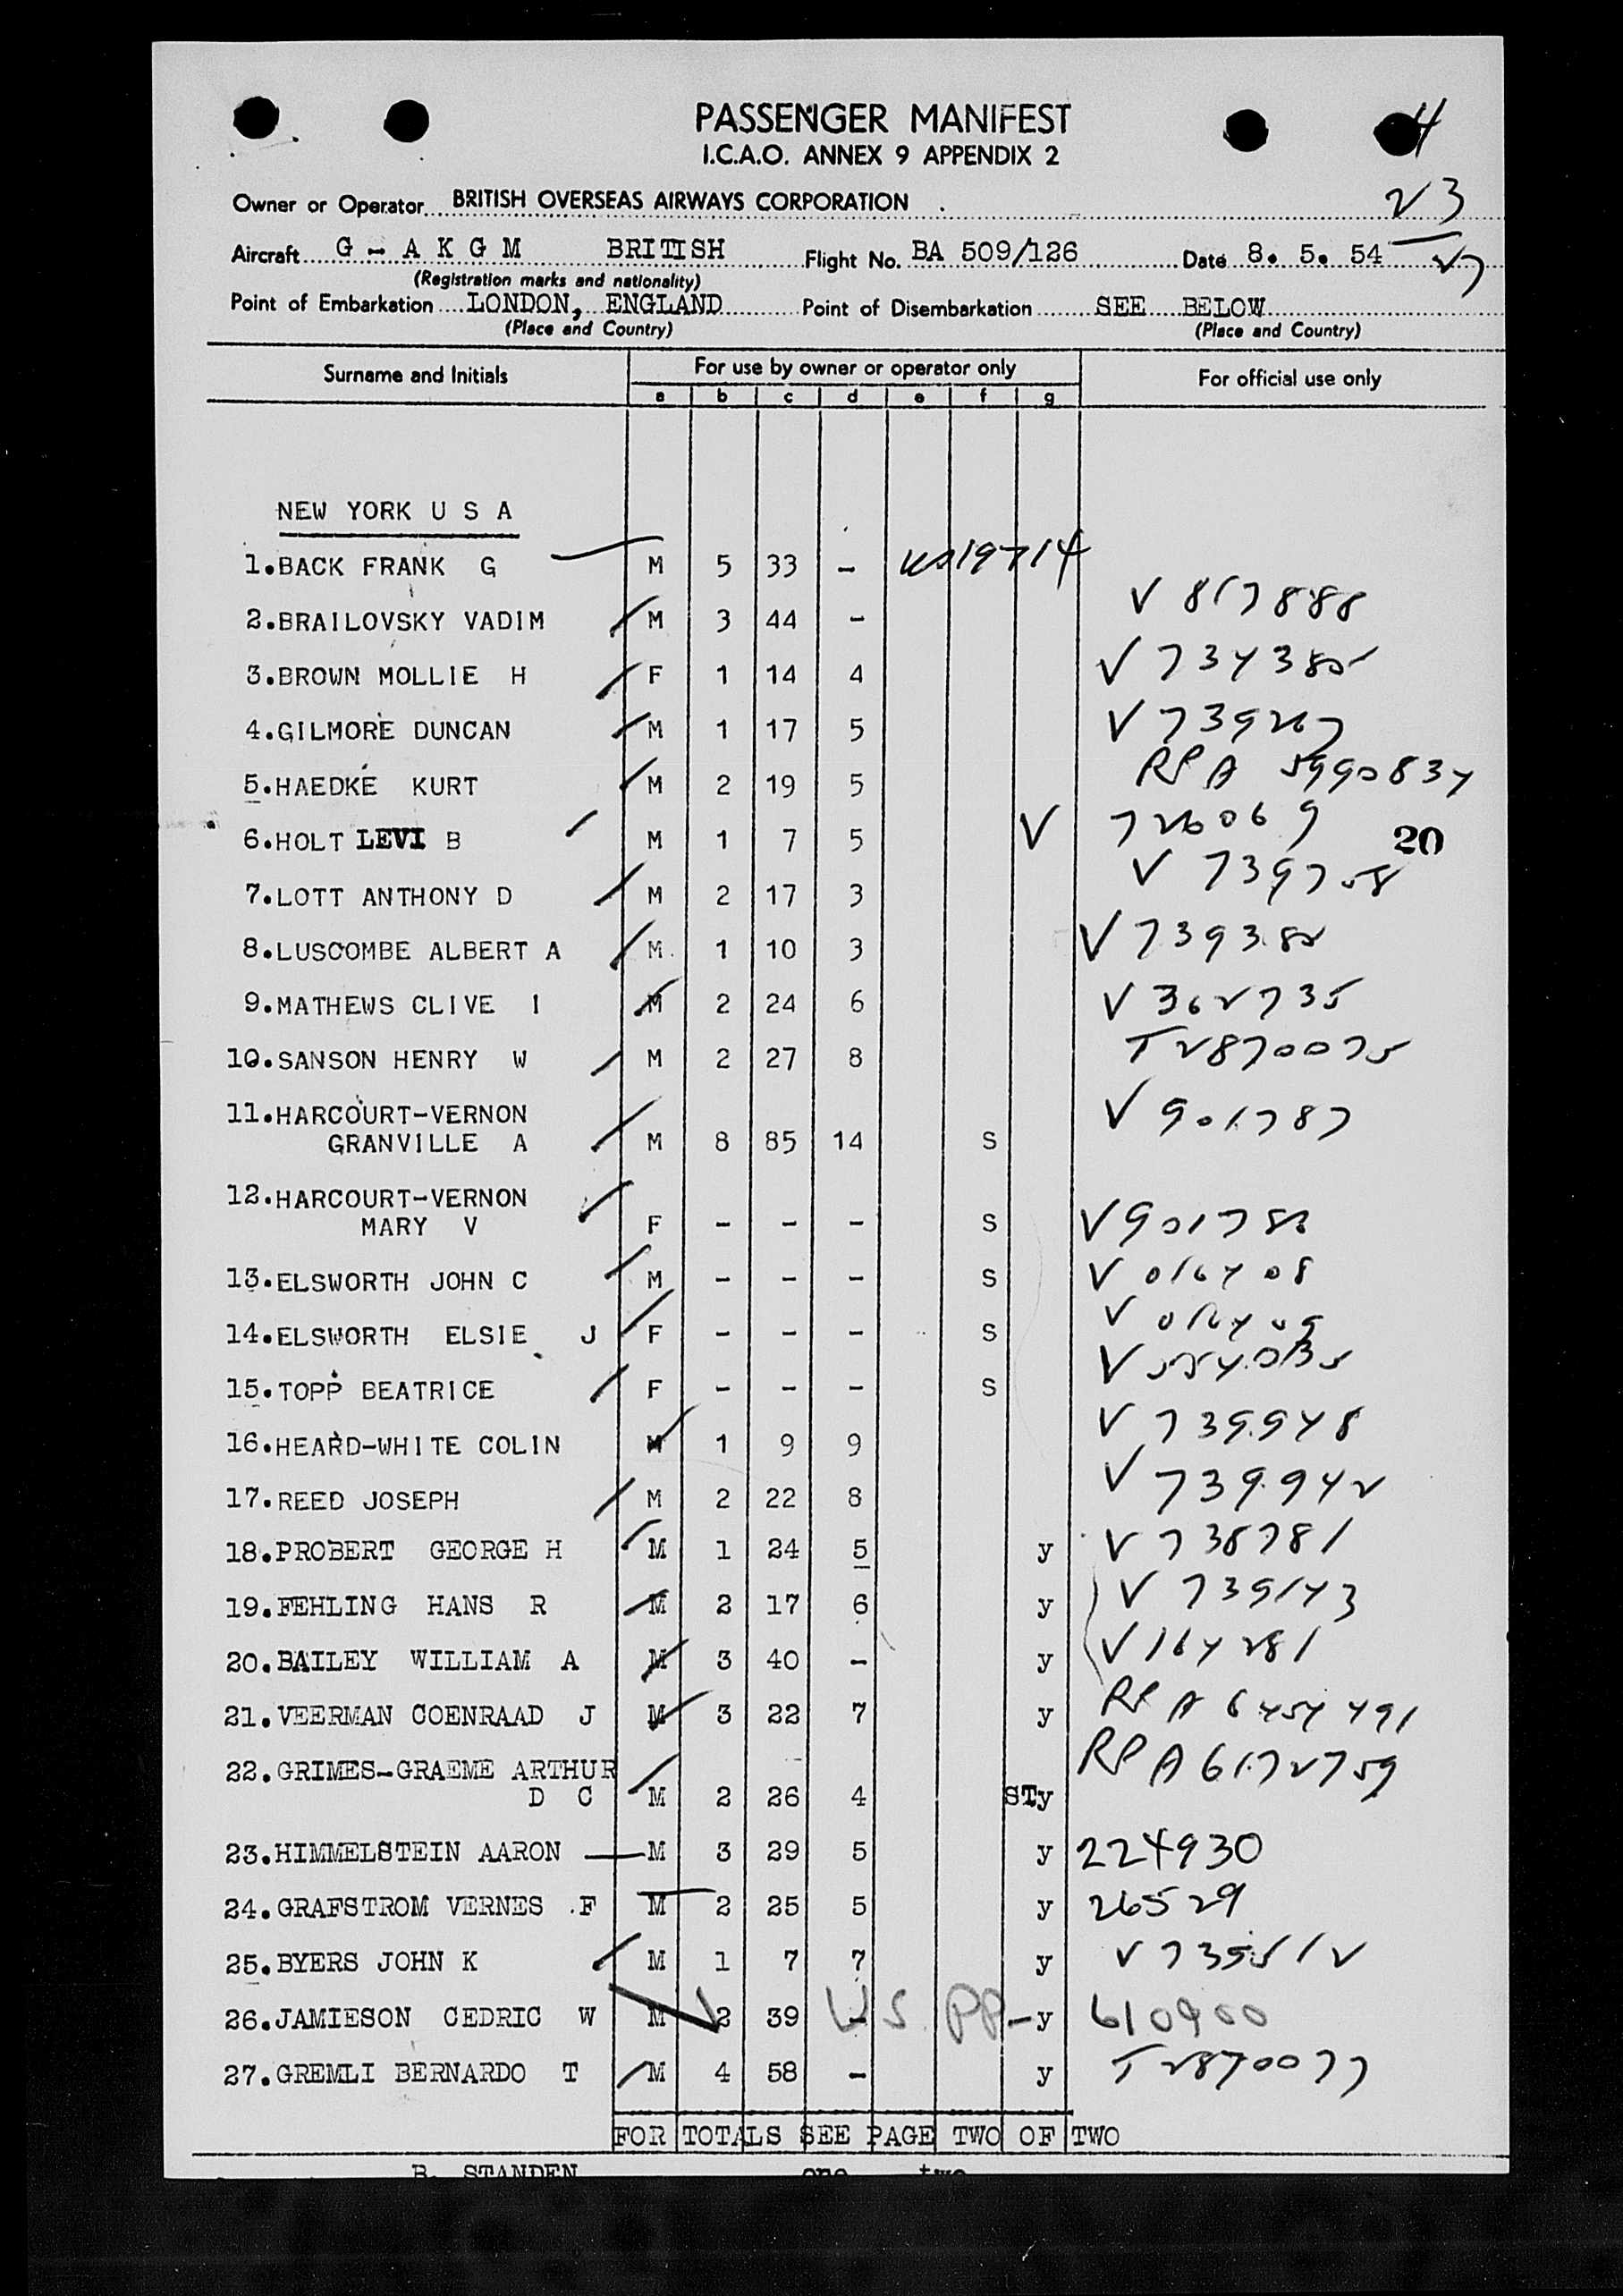 PASSENGER MANIFEST
4
I.C.A.O. ANNEX 9 APPENDIX 2
Owner or Operator BRITISH OVERSEAS AIRWAYS CORPORATION
23
Aircraft G - A K G M BRITISH Flight No. BA 509/126 Date 8. 5. 54
(Registration marks and nationality)
Point of Embarkation LONDON, ENGLAND Point of Disembarkation SEE BELOW
(Place and Country) (Place and Country)
Surname and Initials For use by owner or operator only For official use only
a b c d e f g
NEW YORK U S A
1. BACK FRANK G M 5 33 - 19714
2. BRAILOVSKY VADIM M 3 44 - V 817888
3. BROWN MOLLIE H F 1 14 4
4. GILMORE DUNCAN M 1 17 5 V 739267
5. HAEDKE KURT M 2 19 5 RP A 5990834
6. HOLT LEVI B M 1 7 5 V 726069 20
7. LOTT ANTHONY D M 2 17 3 V 739758
8. LUSCOMBE ALBERT A M 1 10 3 V 739382
9. MATHEWS CLIVE I M 2 24 6 V 362735
10. SANSON HENRY W M 2 27 8 T 2870075
11. HARCOURT-VERNON
GRANVILLE A M 8 85 14 S V 901787
12. HARCOURT-VERNON
MARY V F - - - S
13. ELSWORTH JOHN C M - - - S V 016408
14. ELSWORTH ELSIE J F - - - S V 016409
15. TOPP BEATRICE F - - - S
16. HEARD-WHITE COLIN M 1 9 9 V 739948
17. REED JOSEPH M 2 22 8 V 739942
18. PROBERT GEORGE H M 1 24 5 y V 738781
19. FEHLING HANS R M 2 17 6 y V 739143
20. BAILEY WILLIAM A M 3 40 - y V 164281
21. VEERMAN COENRAAD J M 3 22 7 y RP A 6454491
22. GRIMES-GRAEME ARTHUR
D C M 2 26 4 STy RP A 6172759
23. HIMMELSTEIN AARON M 3 29 5 y 224930
24. GRAFSTROM VERNES .F M 2 25 5 y 26529
25. BYERS JOHN K M 1 7 7 y V 739512
26. JAMIESON CEDRIC W M 2 39 - US. PP - y 610900
27. GREMLI BERNARDO T M 4 58 - y T 2870077
FOR TOTALS SEE PAGE TWO OF TWO
B. STANDEN one two